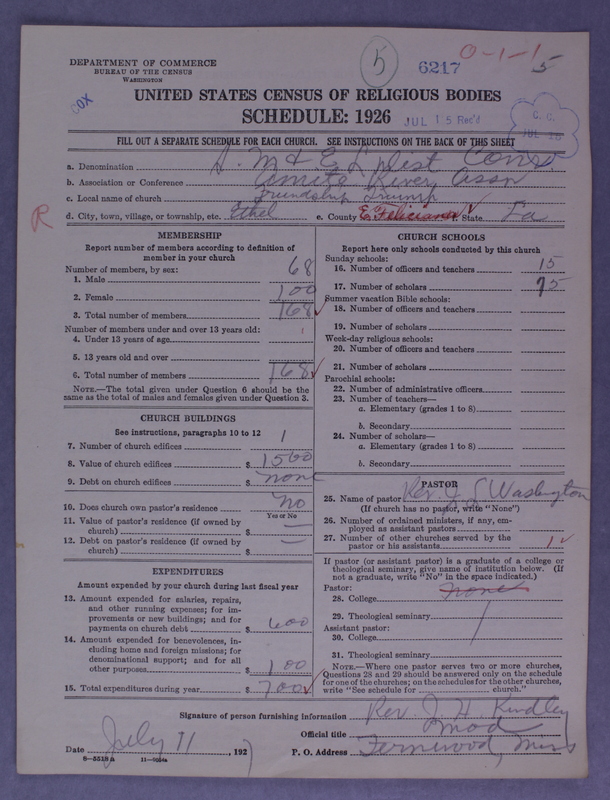 DEPARTMENT OF COMMERCE
BUREAU OF THE CENSUS
WASHINGTON
5
6217
0-1-15
COX
UNITED STATES CENSUS OF RELIGIOUS BODIES
SCHEDULE: 1926
JUL 15 Rec'd
G. C.
JUL
FILL OUT A SEPARATE SCHEDULE FOR EACH CHURCH. SEE INSTRUCTIONS ON THE BACK OF THIS SHEET
a. Denomination
b. Association or Conference Amite River Assn
c. Local name of church Friendship Triump
R
d. City, town, village, or township, etc. Ethel e. County E. Feliciana f. State La
MEMBERSHIP
Report number of members according to definition of member in your church
Number of members, by sex:
1. Male 68
2. Female 100
3. Total number of members 168
Number of members under and over 13 years old:
4. Under 13 years of age
5. 13 years old and over
6. Total number of members 168
NOTE.—The total given under Question 6 should be the same as the total of males and females given under Question 3.
CHURCH BUILDINGS
See instructions, paragraphs 10 to 12
7. Number of church edifices 1
8. Value of church edifices $ 1500
9. Debt on church edifices $ none
10. Does church own pastor's residence? no
Yes or No
11. Value of pastor's residence (if owned by church) $ —
12. Debt on pastor's residence (if owned by church) $ —
EXPENDITURES
Amount expended by your church during last fiscal year
13. Amount expended for salaries, repairs, and other running expenses; for improvements or new buildings; and for payments on church debt $ 600
14. Amount expended for benevolences, including home and foreign missions; for denominational support; and for all other purposes $ 100
15. Total expenditures during year $ 700
CHURCH SCHOOLS
Report here only schools conducted by this church
Sunday schools:
16. Number of officers and teachers 15
17. Number of scholars 75
Summer vacation Bible schools:
18. Number of officers and teachers
19. Number of scholars
Week-day religious schools:
20. Number of officers and teachers
21. Number of scholars
Parochial schools:
22. Number of administrative officers
23. Number of teachers—
a. Elementary (grades 1 to 8)
b. Secondary
24. Number of scholars—
a. Elementary (grades 1 to 8)
b. Secondary
PASTOR
25. Name of pastor Rev. J S Washington
(If church has no pastor, write "None")
26. Number of ordained ministers, if any, employed as assistant pastors
27. Number of other churches served by the pastor or his assistants 1
If pastor (or assistant pastor) is a graduate of a college or theological seminary, give name of institution below. (If not a graduate, write "No" in the space indicated.)
Pastor:
28. College none
29. Theological seminary
Assistant pastor:
30. College
31. Theological seminary
NOTE.—Where one pastor serves two or more churches, Questions 28 and 29 should be answered only on the schedule for one of the churches; on the schedules for the other churches, write "See schedule for church."
Signature of person furnishing information Rev. J. H. Kindley
Official title Mod
Date July 11, 1927 P. O. Address Fernwood, Miss
8—5513a 11—9254a